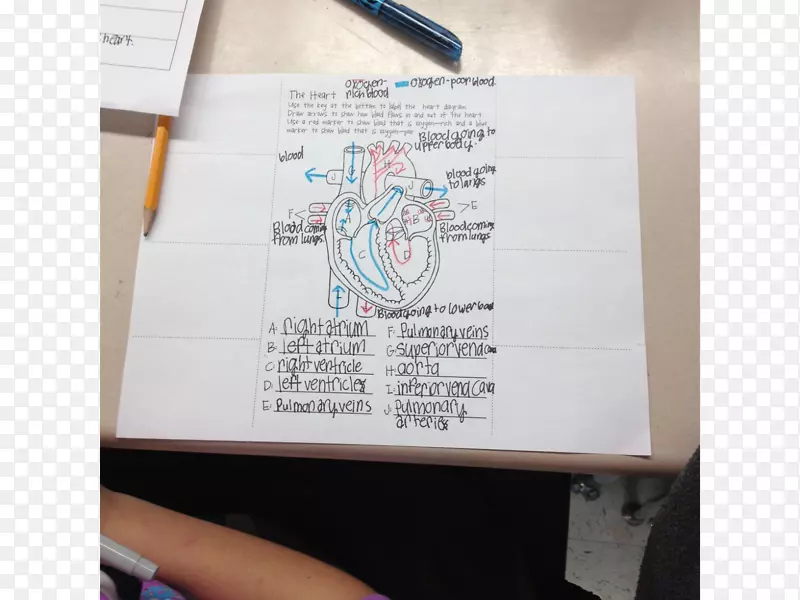 heart.
oxogen-rich blood
oxogen-poor blood
The Heart
Use the key at the bottom to label the heart diagram.
Draw arrows to show how blood flows in and out of the heart.
Use a red marker to show blood that is oxygen-rich and a blue
marker to show blood that is oxygen-poor
Blood going to
upper body.
blood
blood going
to lungs
G
H
J
J
F
E
A
B
Blood coming
from lungs.
Blood coming
from lungs.
C
D
I
Blood going to lower bod
A: right atrium
B: left atrium
C: right ventricle
D: left ventricles
E: Pulmonary veins
F: Pulmonary veins
G: superior vena cava
H: aorta
I: inferior vena cava
J: Pulmonary
arteries